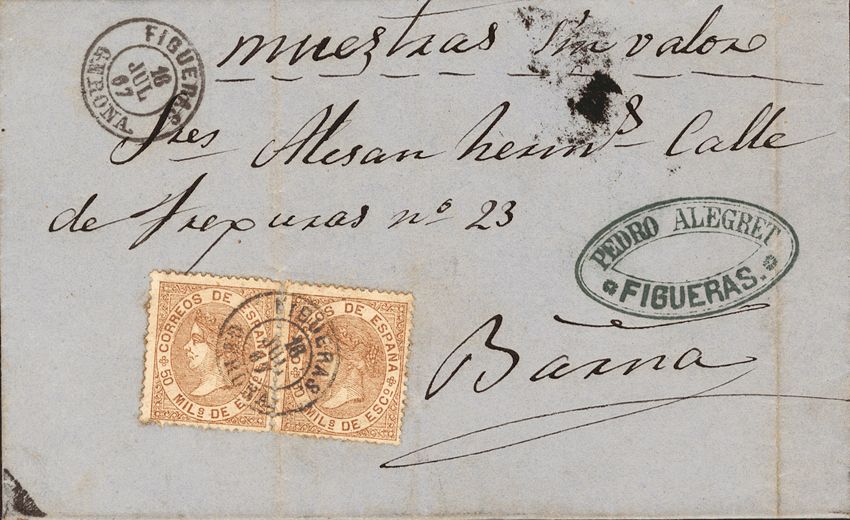 FIGUERAS
16
JUL
67
GERONA
muestras sin valor
Sres Alesan herms Calle
de Trepuras nº 23
PEDRO ALEGRET
FIGUERAS.
CORREOS DE ESPAÑA
50 MILS DE ESCO
FIGUERAS
16
JUL
67
GERONA
OS DE ESPAÑA
50 MILS DE ESCO
Barna